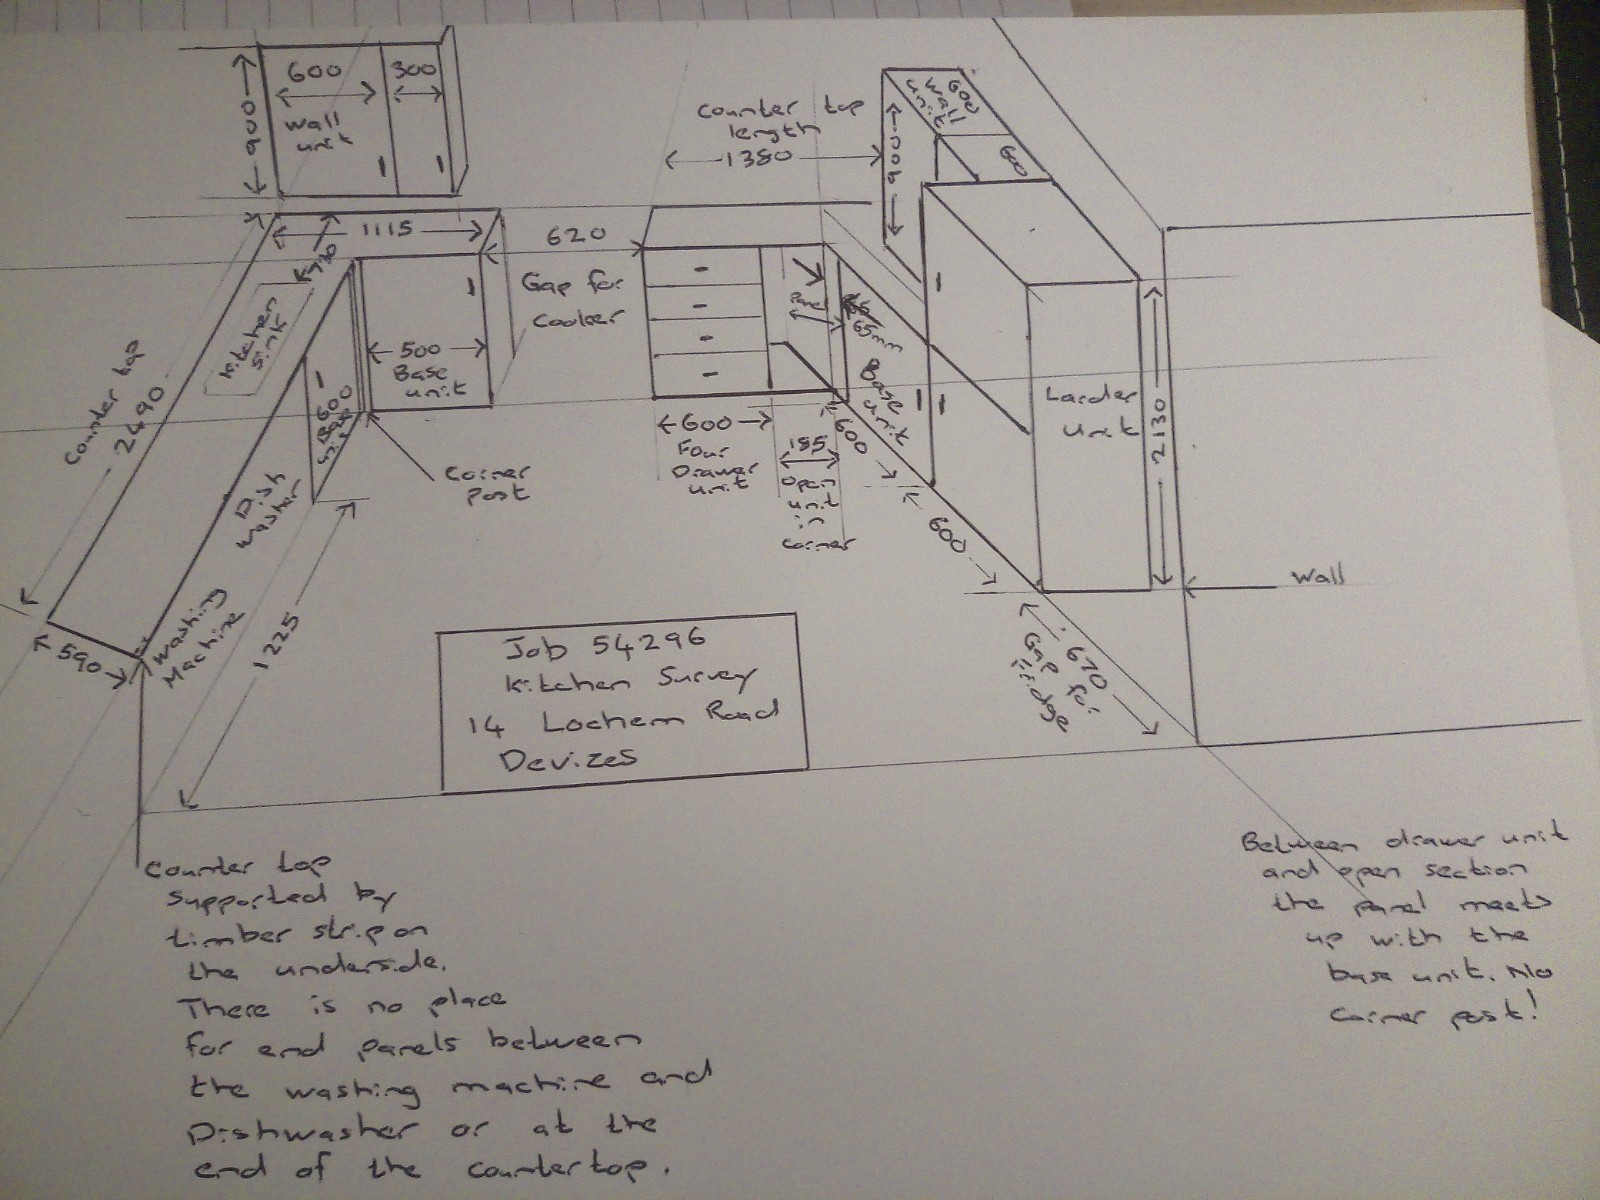 600
300
wall
unit
900
600
wall
unit
600
900
counter top
length
1380
1115
620
730
Kitchen
sink
Gap for
cooker
500
Base
unit
600
Base
unit
Panel
65mm
Base
unit
Larder
unit
2130
Counter top
2490
Dish
washer
Corner
post
600
Four
Drawer
unit
185
open
unit
in
corner
600
600
Wall
670
Gap for
fridge
590
washing
Machine
1225
Job 54296
Kitchen Survey
14 Lochem Road
Devizes
Counter top
supported by
timber strip on
the underside.
There is no place
for end panels between
the washing machine and
Dishwasher or at the
end of the countertop.
Between drawer unit
and open section
the panel meets
up with the
base unit. No
corner post!